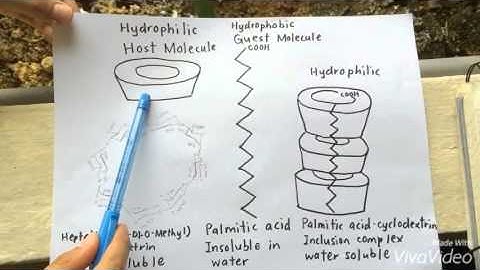 Hydrophilic
Host Molecule
Hydrophobic
Guest Molecule
COOH
Hydrophilic
COOH
Palmitic acid
Insoluble in
water
Palmitic acid-cyclodextrin
Inclusion complex
water soluble
Made With
VivaVideo